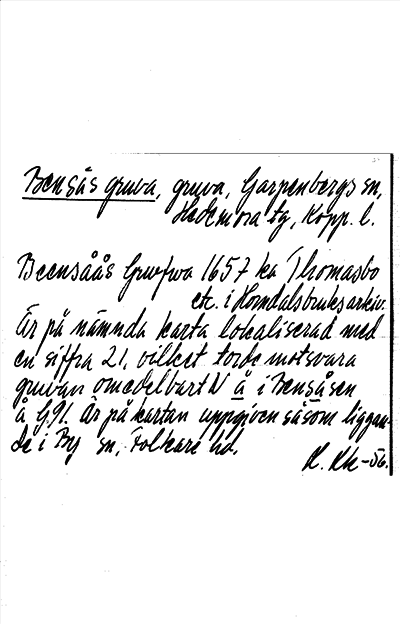 Bensås gruva, gruva, Garpenbergs sn,
Hedemora tg, Kopp. l.
Beensåås Grufwa 1657 ka Thomasbo
etc. i Horndalsbruksarkiv.
Är på nämnda karta lokaliserad med
en siffra 21, vilket torde motsvara
gruvan omedelbart N å i Bensåsen
å G91. Är på kartan uppgiven såsom liggan-
de i By sn, Folkare hd.
-56.